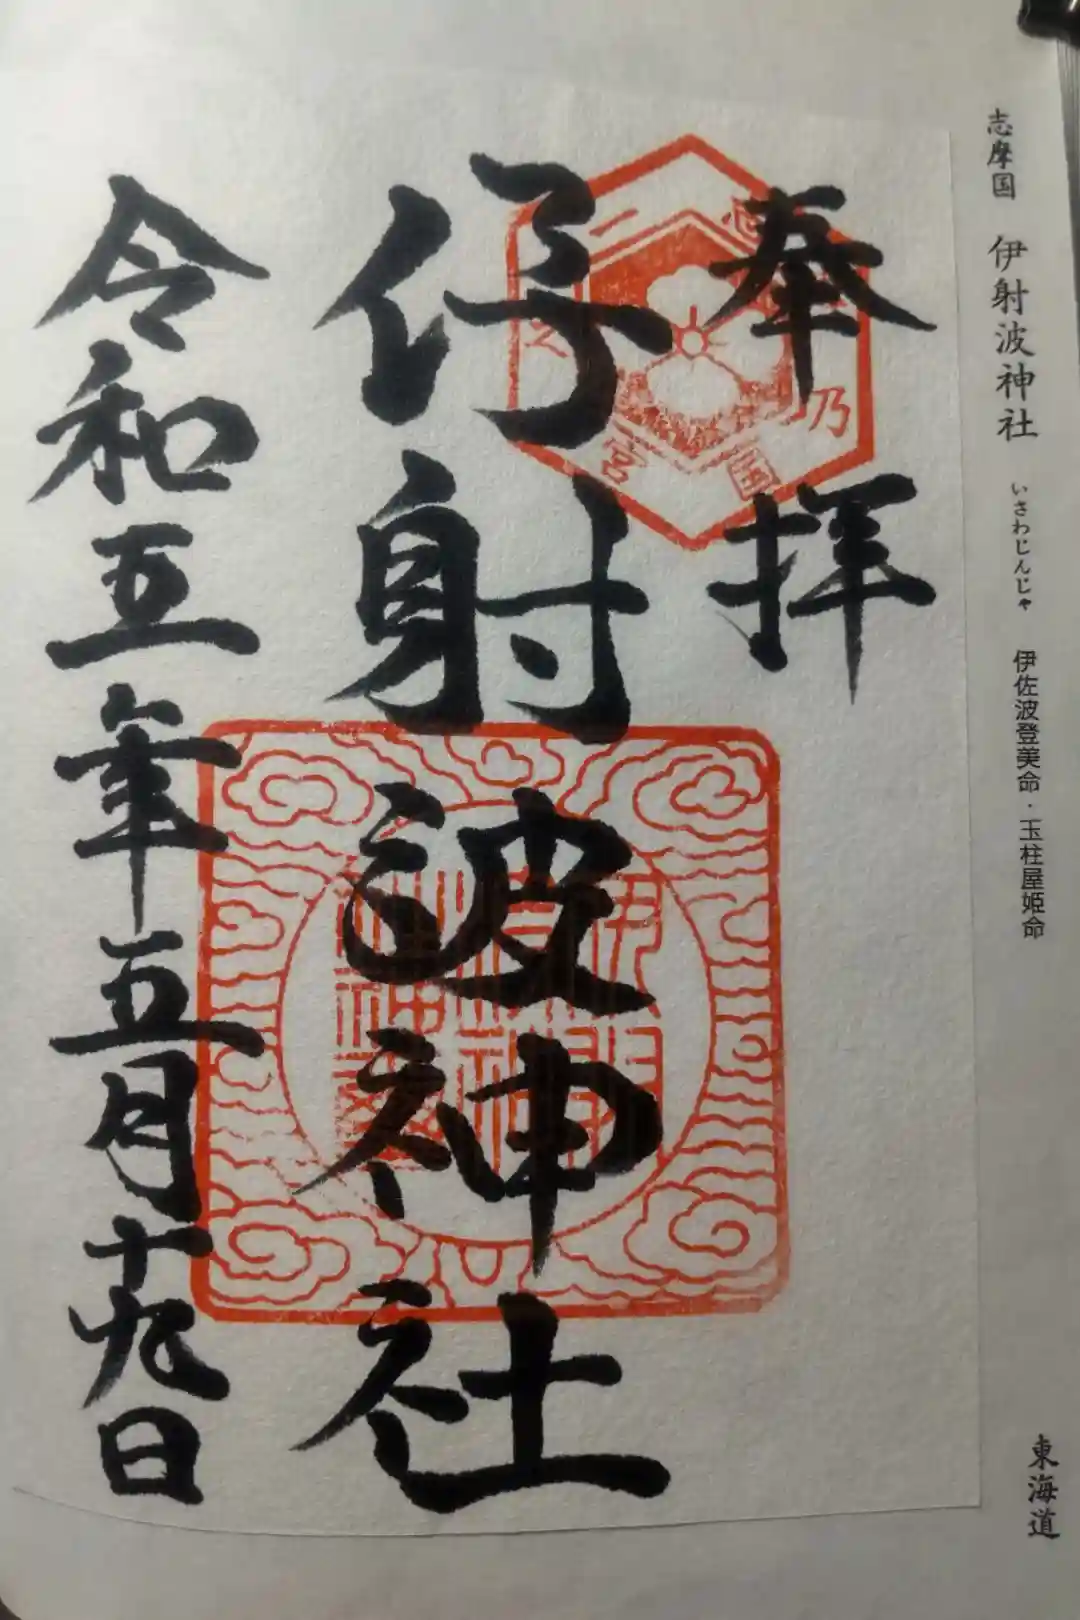 志摩国 伊射波神社 いさわじんじゃ 伊佐波登美命・玉柱屋姫命
東海道
奉拝
志
乃
国
一
之
宮
伊射波神社
令和五年五月十九日